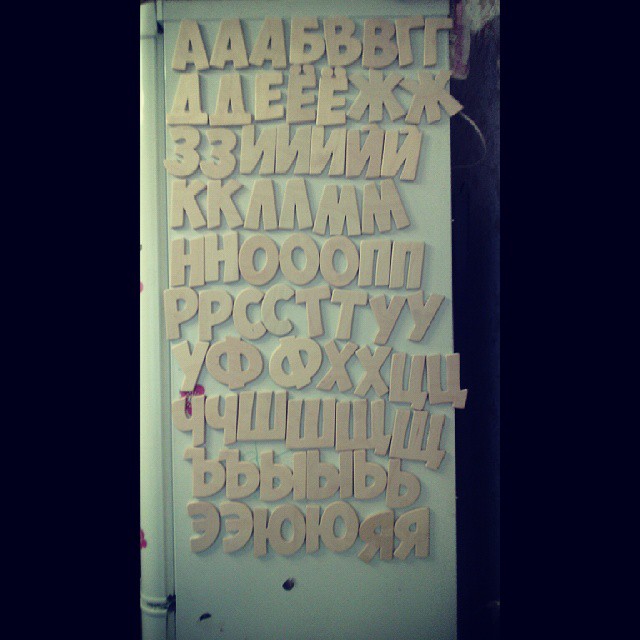 АААБВВГГ
ДДЕЁЁЖЖ
ЗЗИИИЙЙ
ККЛЛММ
ННОООПП
РРССТТУУ
УФФХХЦЦ
ЧЧШШЩЩ
ЪЪЫЫЬЬ
ЭЭЮЮЯЯ